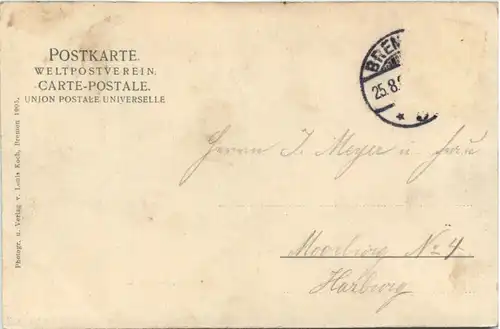 POSTKARTE.
WELTPOSTVEREIN.
CARTE-POSTALE.
UNION POSTALE UNIVERSELLE
Photogr. u. Verlag v. Louis Koch, Bremen 1905.
BREM
25.8.
Herrn J. Meyer u. Frau
Moorburg No 4
Harburg